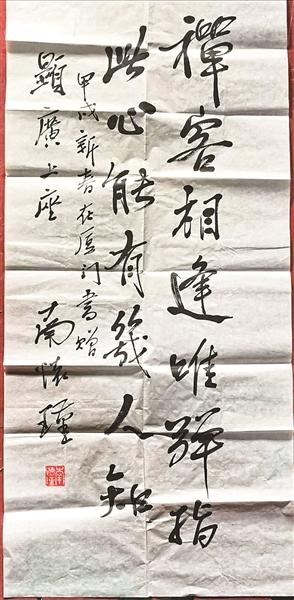 禪客相逢唯彈指
此心能有幾人知
甲戌新春在廈门書贈
顯廣上座
南懷瑾